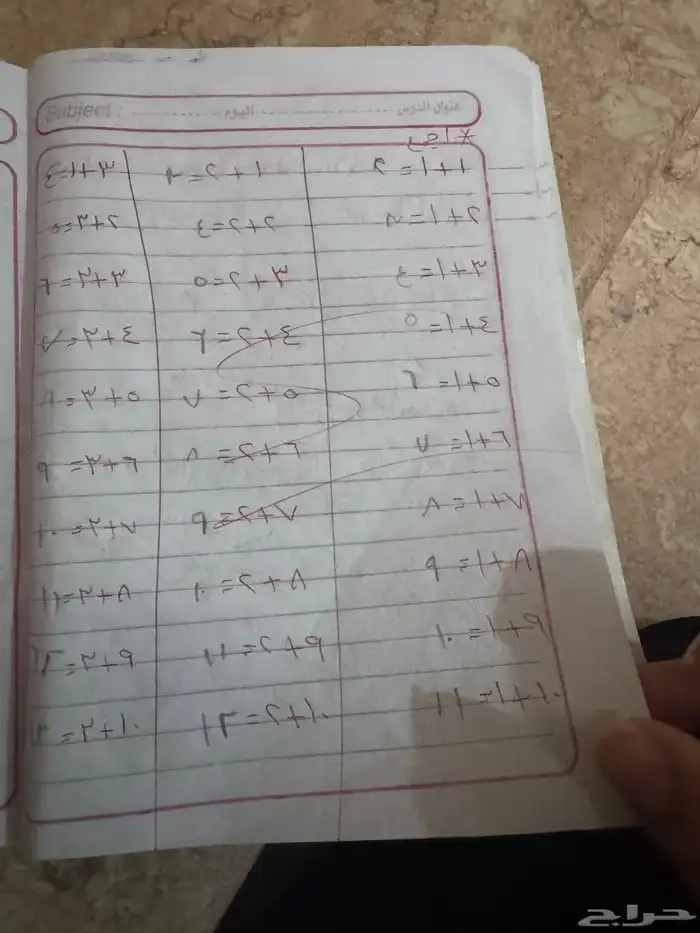 Subject : اليوم عنوان الدرس
* اجمع
١+١=٢ ١+٢=٣ ٣+١=٤
٢+١=٣ ٢+٢=٤ ٢+٣=٥
٣+١=٤ ٣+٢=٥ ٣+٣=٦
٤+١=٥ ٤+٢=٦ ٤+٣=٧
٥+١=٦ ٥+٢=٧ ٥+٣=٨
٦+١=٧ ٦+٢=٨ ٦+٣=٩
٧+١=٨ ٧+٢=٩ ٧+٣=١٠
٨+١=٩ ٨+٢=١٠ ٨+٣=١١
٩+١=١٠ ٩+٢=١١ ٩+٣=١٢
١٠+١=١١ ١٠+٢=١٢ ١٠+٣=
حراج